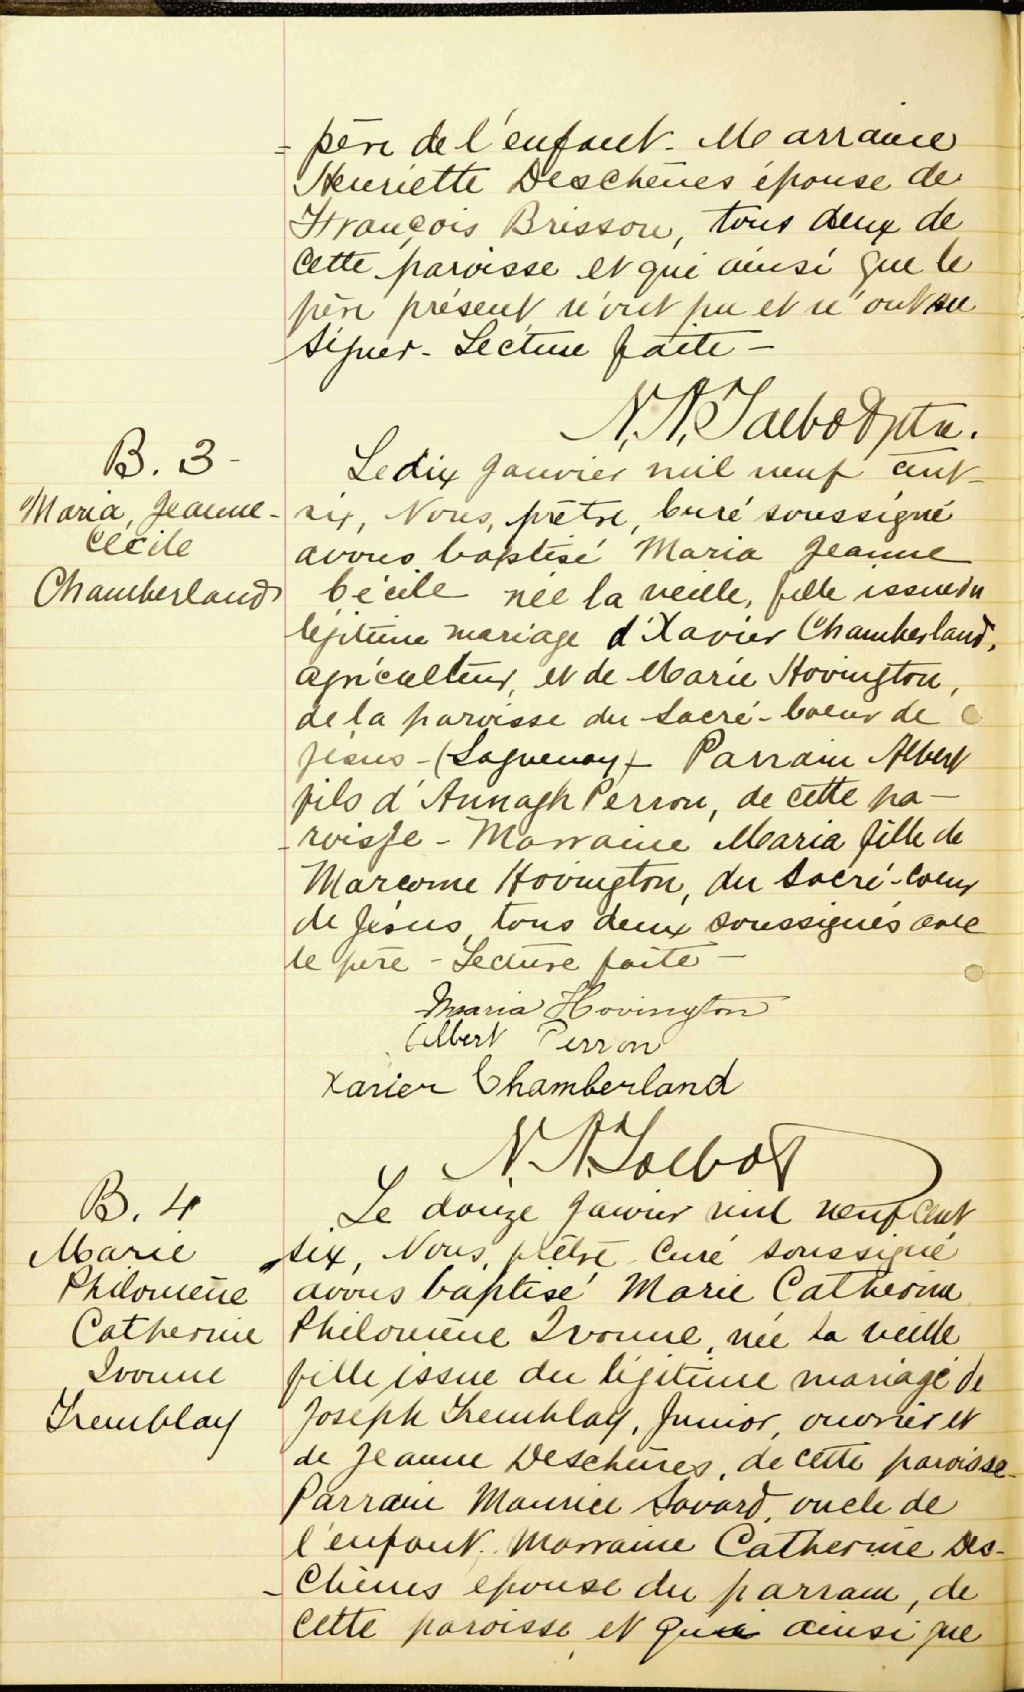 - père de l'enfant. Marraine
Henriette Deschênes épouse de
François Brisson, tous deux de
cette paroisse et qui ainsi que le
père présent n'ont pu et n'ont su
signer - Lecture faite -
N. A. Talbot ptre.
B. 3 -
Maria, Jeanne-
Cécile
Chamberland
Le dix Janvier mil neuf cent-
six, Nous, prêtre, Curé soussigné
avons baptisé Maria Jeanne
Cécile née la veille, fille issue du
légitime mariage d'Xavier Chamberland,
agriculteur, et de Marie Hovington,
de la paroisse du Sacré-Coeur de
Jésus - (Saguenay) - Parrain Albert
fils d' Perron, de cette pa-
-roisse - Marraine Maria fille de
Marcome Hovington, du Sacré-Coeur
de Jésus, tous deux soussignés avec
le père - Lecture faite -
Maria Hovington
Albert Perron
Xavier Chamberland
N. A. Talbot
B. 4
Marie
Philomène
Catherine
Ivonne
Tremblay
Le douze Janvier mil neuf cent
six, Nous, prêtre Curé soussigné
avons baptisé Marie Catherine
Philomène Ivonne, née la veille
fille issue du légitime mariage de
Joseph Tremblay, Junior, ouvrier et
de Jeanne Deschênes, de cette paroisse-
Parrain Maurice Savard, oncle de
l'enfant. Marraine Catherine Des-
-chênes épouse du parrain, de
cette paroisse et qui ainsi que